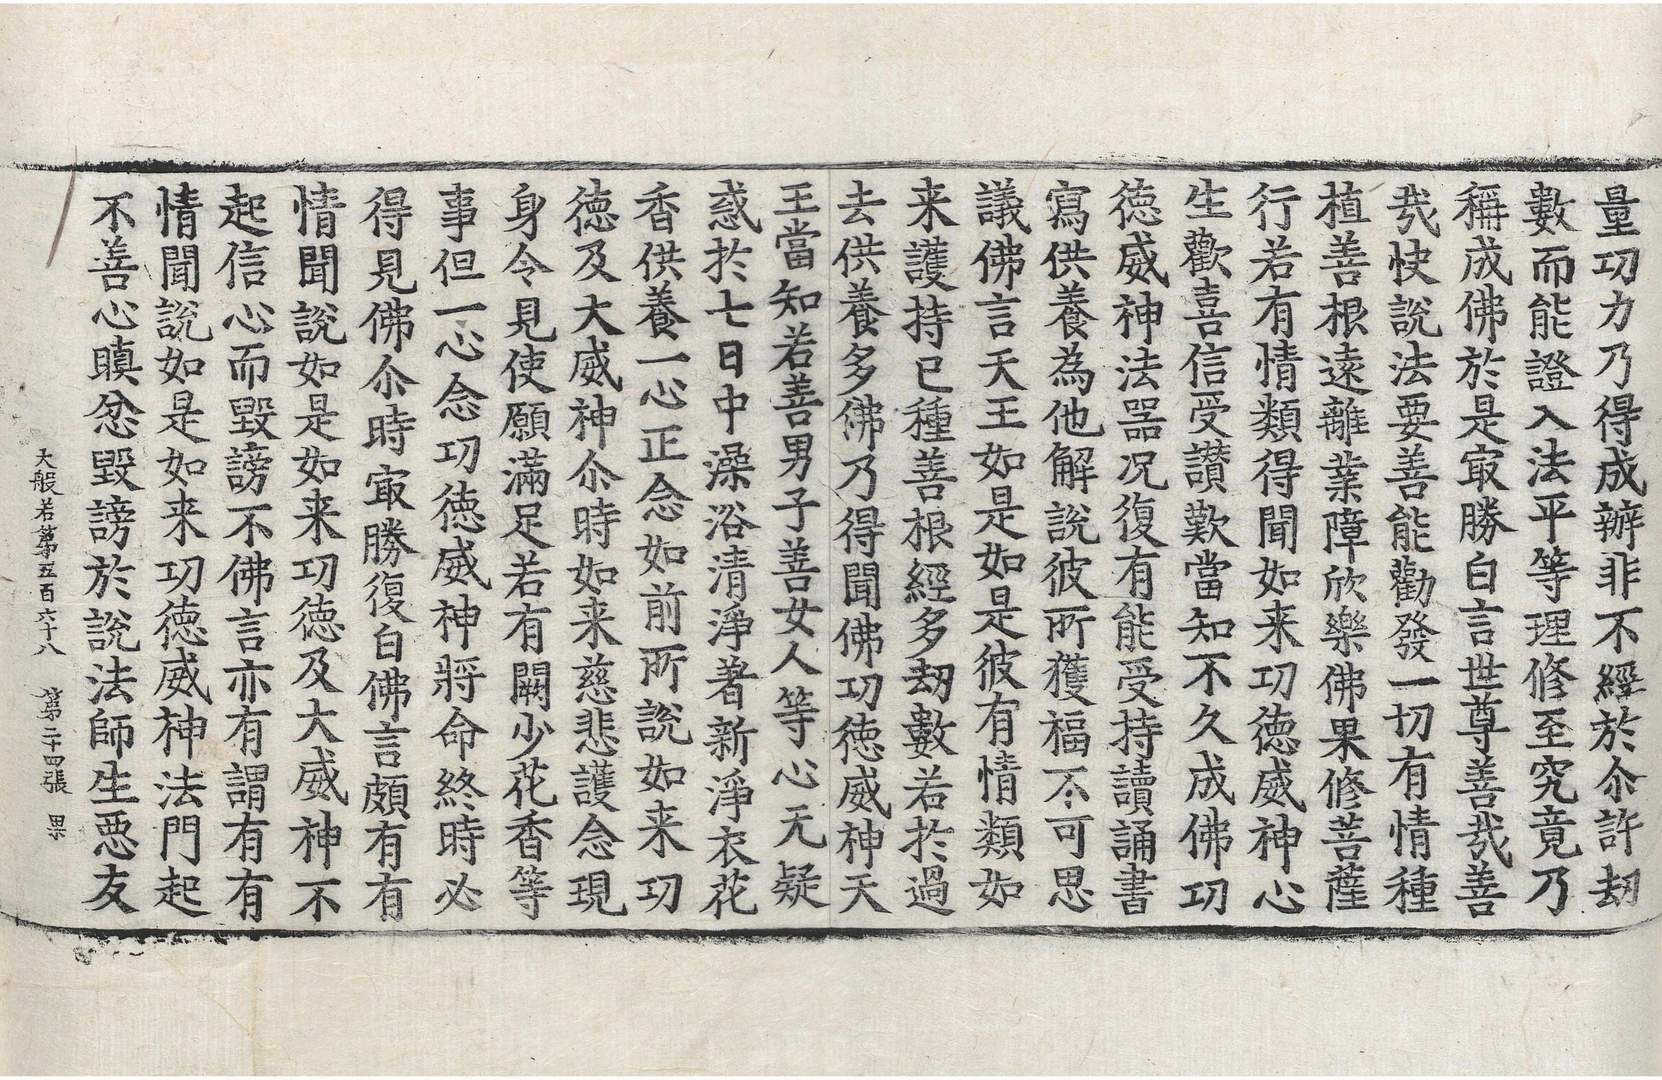 量功力乃得成辦非不經於尒許劫
數而能證入法平等理修至究竟乃
稱成佛於是㝡勝白言世尊善㢤善
㢤快說法要善能勸發一切有情種
植善根遠離業障欣樂佛果修菩薩
行若有情類得聞如来功德威神心
生歡喜信受讃歎當知不久成佛功
德威神法器况復有能受持讀誦書
寫供養為他解說彼所獲福不可思
議佛言天王如是如是彼有情類如
来護持已種善根經多劫數若於過
去供養多佛乃得聞佛功德威神天
王當知若善男子善女人等心无疑
惑於七日中澡浴清淨著新淨衣花
香供養一心正念如前所說如来功
德及大威神尒時如来慈悲護念現
身令見使願滿足若有闕少花香等
事但一心念功德威神將命終時必
得見佛尒時㝡勝復白佛言頗有有
情聞說如是如来功德及大威神不
起信心而毀謗不佛言亦有謂有有
情聞說如是如来功德威神法門起
不善心瞋忿毀謗於說法師生惡友
大般若第五百六十八 第二十四張 果